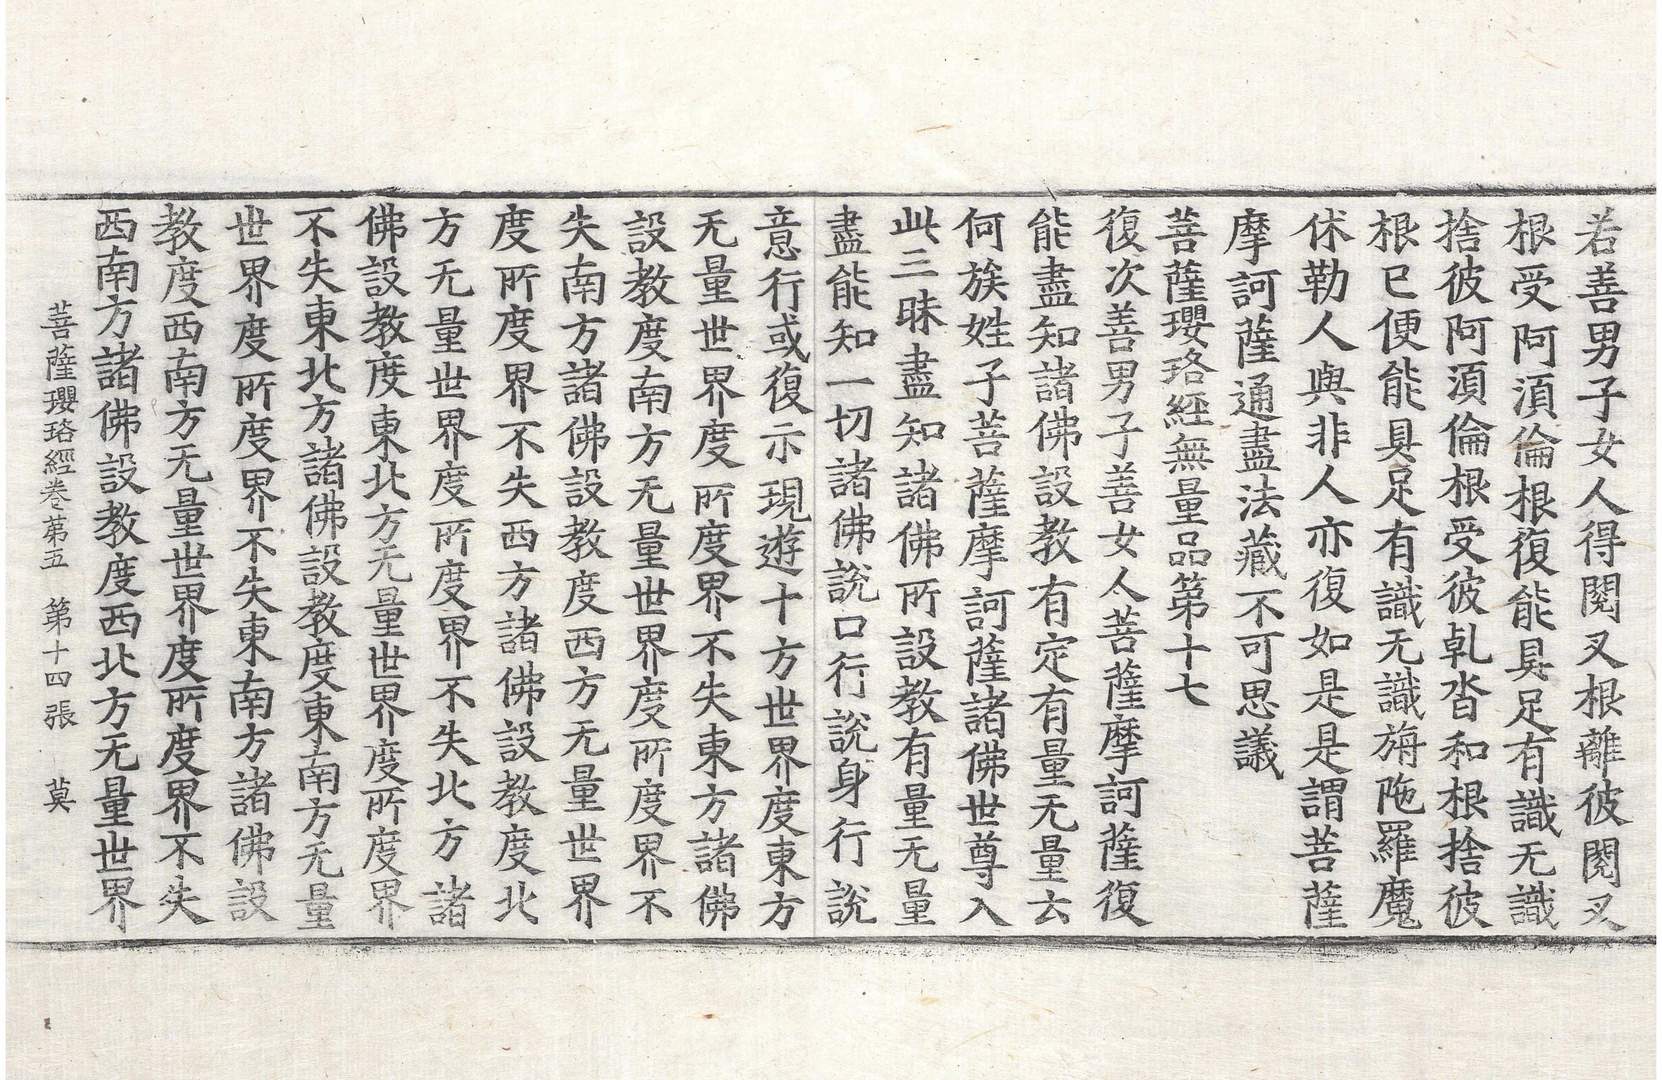 若善男子女人得閱叉根離彼閱叉
根受阿湏倫根復能具足有識无識
捨彼阿湏倫根受彼乹沓和根捨彼
根已便能具足有識无識旃陁羅魔
休勒人與非人亦復如是是謂菩薩
摩訶薩通盡法藏不可思議
菩薩瓔珞經無量品第十七
復次善男子善女人菩薩摩訶薩復
能盡知諸佛設教有定有量无量云
何族姓子菩薩摩訶薩諸佛世尊入
此三昧盡知諸佛所設教有量无量
盡能知一切諸佛說口行說身行說
意行或復示現遊十方世界度東方
无量世界度所度界不失東方諸佛
設教度南方无量世界度所度界不
失南方諸佛設教度西方无量世界
度所度界不失西方諸佛設教度北
方无量世界度所度界不失北方諸
佛設教度東北方无量世界度所度界
不失東北方諸佛設教度東南方无量
世界度所度界不失東南方諸佛設
教度西南方无量世界度所度界不失
西南方諸佛設教度西北方无量世界
菩薩瓔珞經卷苐五 第十四張 莫